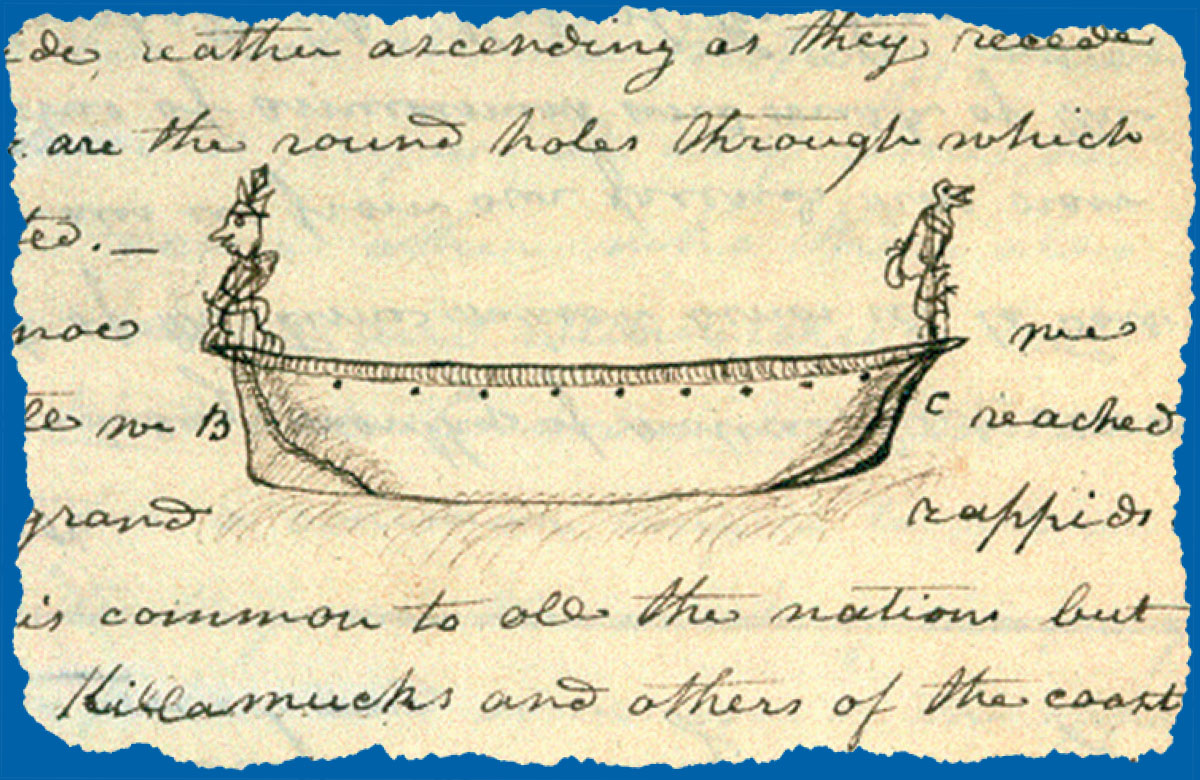 ide, reather ascending as they recede
are the round holes through which
ted. —
noe me
le we B C reached
grand rappids
is common to all the nations but
Killamucks and others of the coast